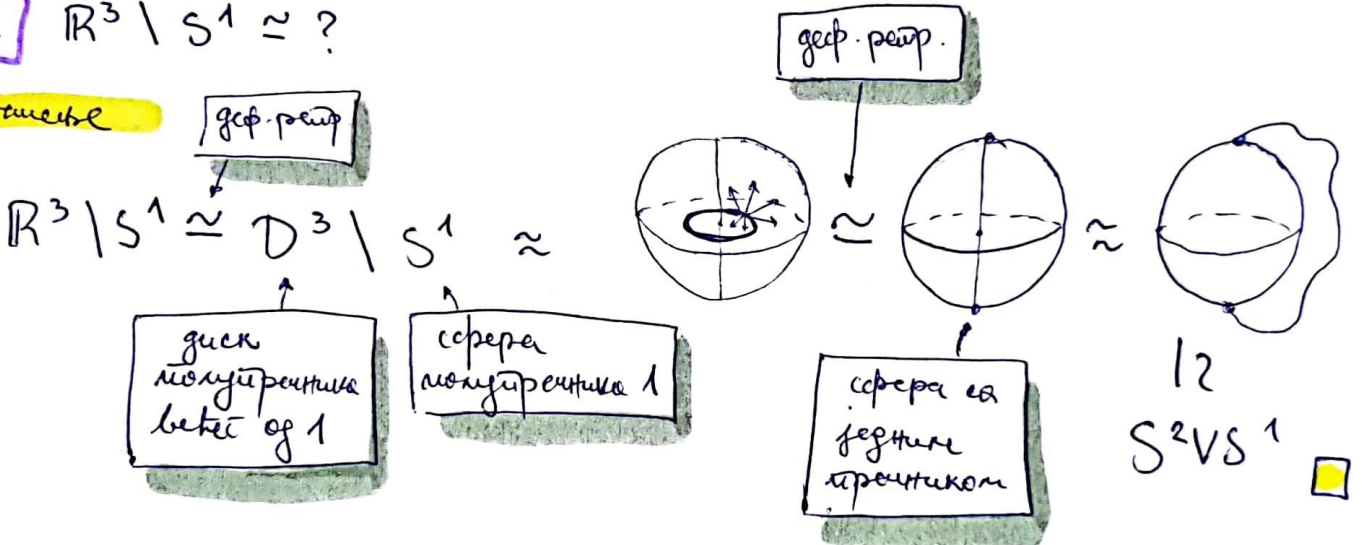 ℝ³ \ S¹ ≃ ?
деф. ретр.
деф. ретр
ℝ³ \ S¹ ≃ D³ \ S¹ ≈
≃
≈
диск
полупречника
већег од 1
сфера
полупречника 1
сфера са
једним
пречником
S²VS¹